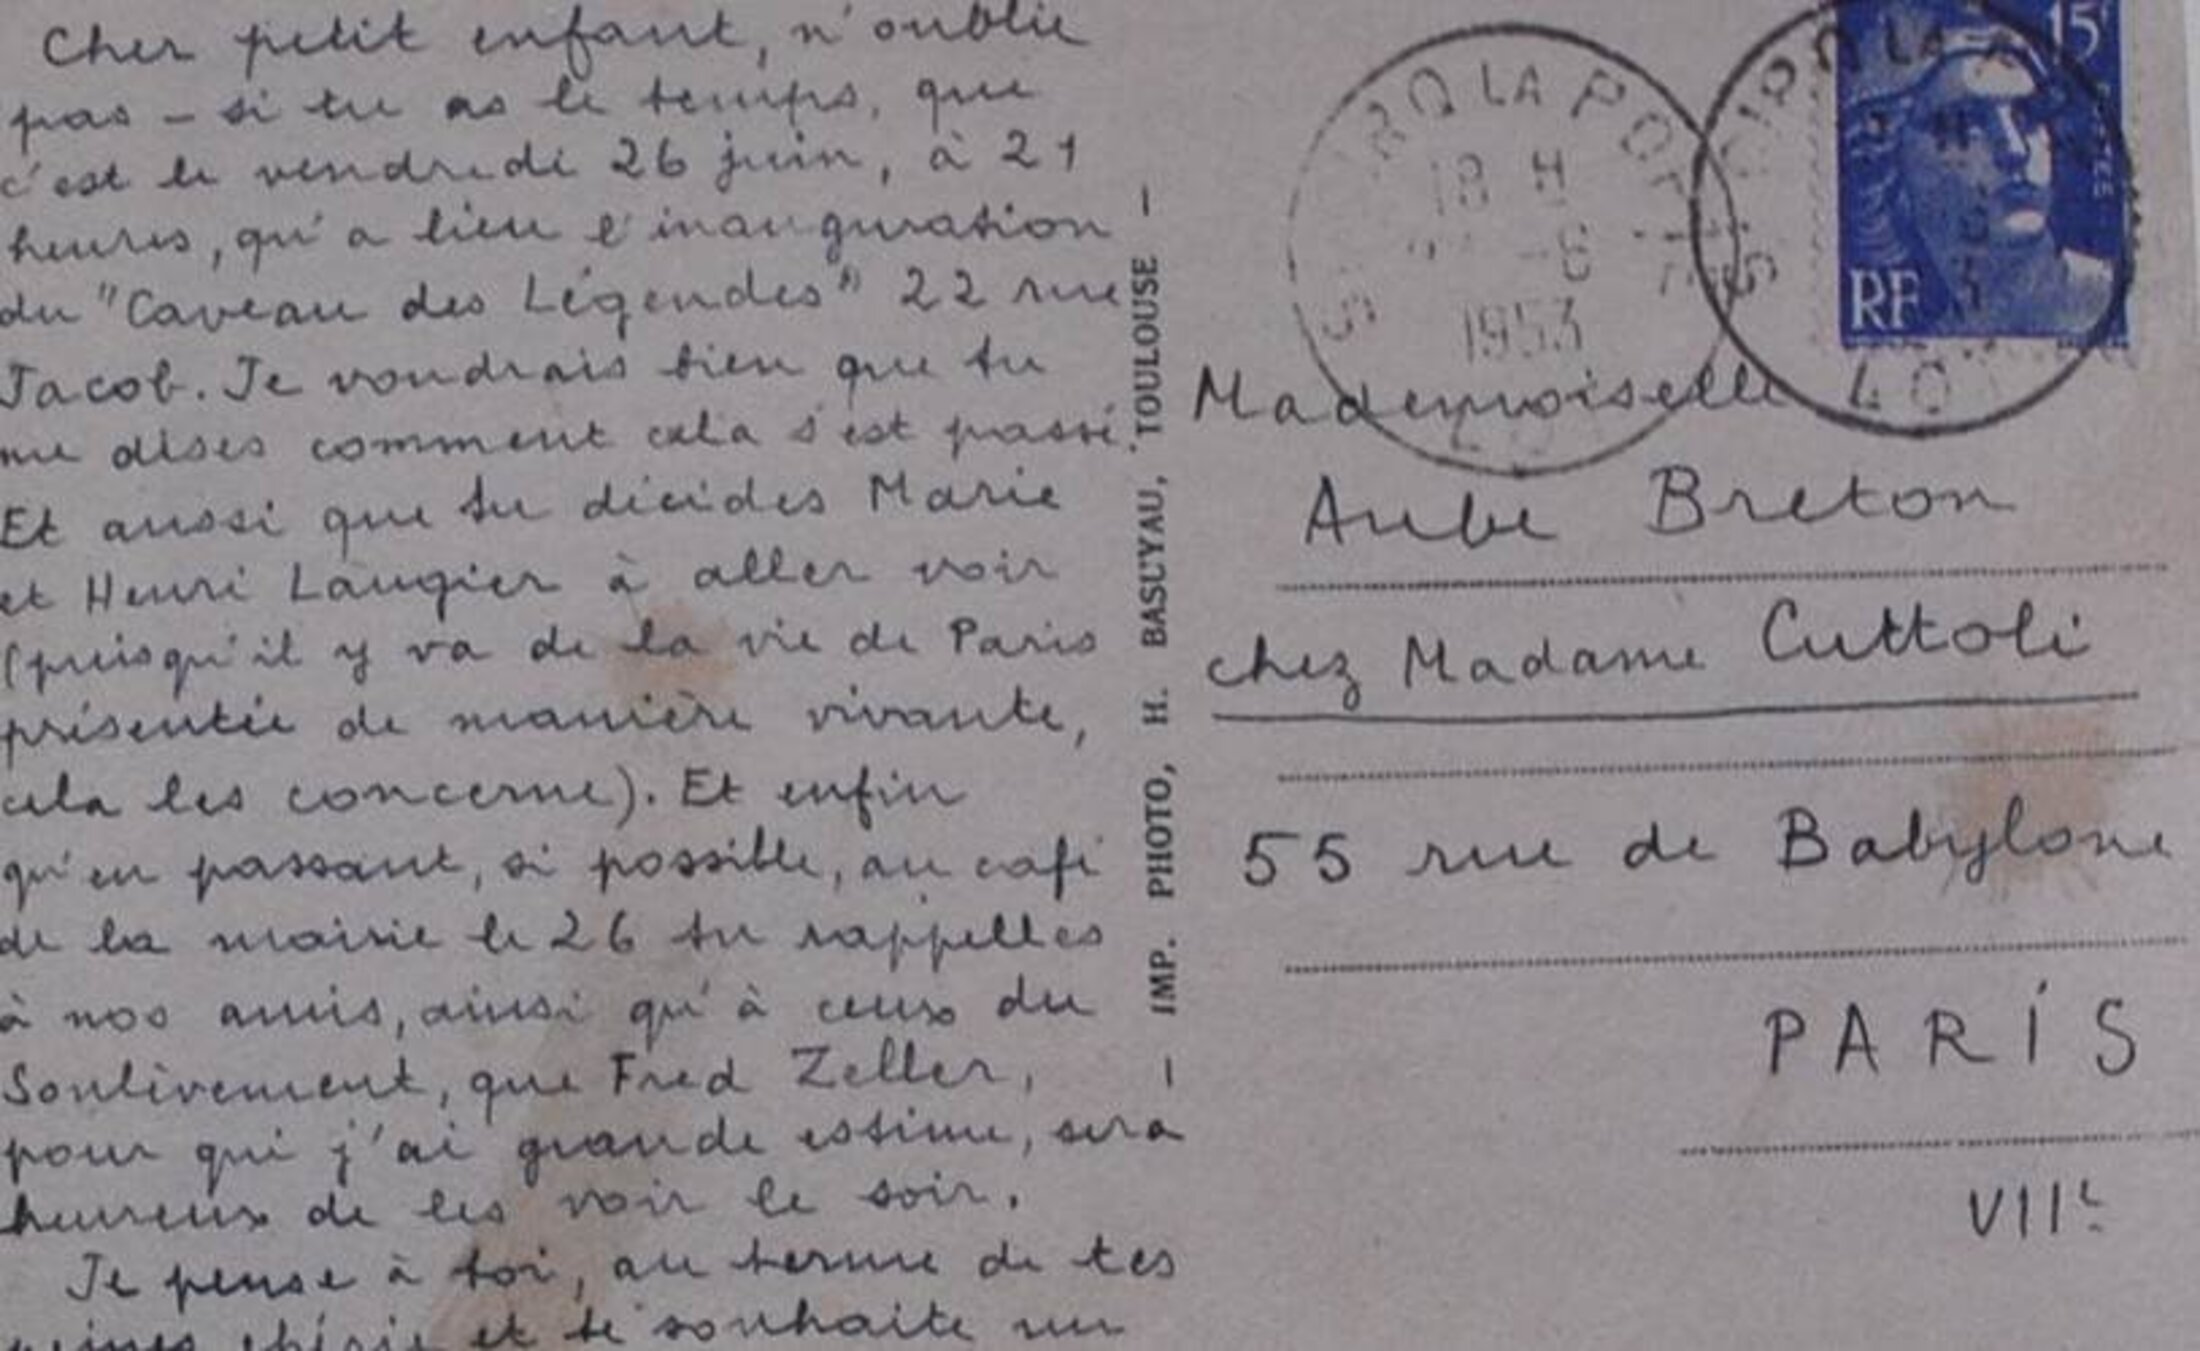 Cher petit enfant, n'oublie
pas – si tu as le temps, que
c'est le vendredi 26 juin, à 21
heures, qu'a lieu l'inauguration
du "Caveau des Légendes" 22 rue
Jacob. Je voudrais bien que tu
me dises comment cela s'est passé.
Et aussi que tu décides Marie
et Henri Laugier à aller voir
(puisqu'il y va de la vie de Paris
présentée de manière vivante,
cela les concerne). Et enfin
qu'en passant, si possible, au café
de la mairie le 26 tu rappelles
à nos amis, ainsi qu'à ceux du
Soulèvement, que Fred Zeller,
pour qui j'ai grande estime, sera
heureux de les voir le soir.
Je pense à toi, au terme de tes
peines chérie et te souhaite un
– IMP. PHOTO, H. BASUYAU, TOULOUSE –
CIRQ LA POP
18 H
-6
1953
LOT
15F
RF
Mademoiselle
Aube Breton
chez Madame Cuttoli
55 rue de Babylone
PARIS
VIIe